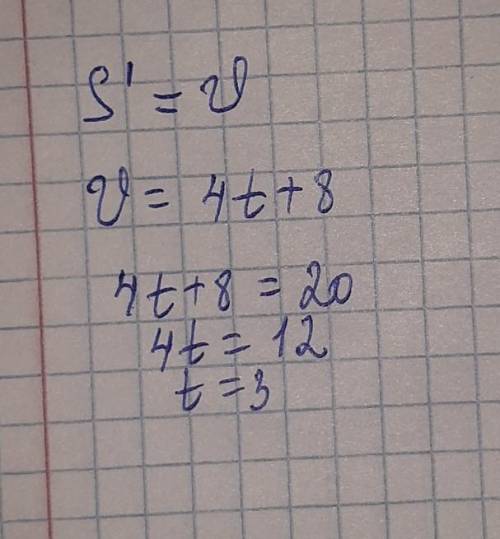 S' = v
v = 4t+8
4t+8 = 20
4t = 12
t = 3